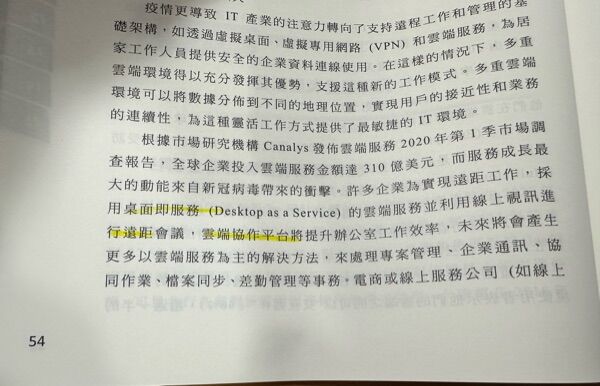 疫情更導致 IT 產業的注意力轉向了支持遠程工作和管理的基
礎架構，如透過虛擬桌面、虛擬專用網路 (VPN) 和雲端服務，為居
家工作人員提供安全的企業資料連線使用。在這樣的情況下，多重
雲端環境得以充分發揮其優勢，支援這種新的工作模式。多重雲端
環境可以將數據分佈到不同的地理位置，實現用戶的接近性和業務
的連續性，為這種靈活工作方式提供了最敏捷的 IT 環境。
根據市場研究機構 Canalys 發佈雲端服務 2020 年第 1 季市場調
查報告，全球企業投入雲端服務金額達 310 億美元，而服務成長最
大的動能來自新冠病毒帶來的衝擊。許多企業為實現遠距工作，採
用桌面即服務 (Desktop as a Service) 的雲端服務並利用線上視訊進
行遠距會議，雲端協作平台將提升辦公室工作效率，未來將會產生
更多以雲端服務為主的解決方法，來處理專案管理、企業通訊、協
同作業、檔案同步、差勤管理等事務。電商或線上服務公司 (如線上
54